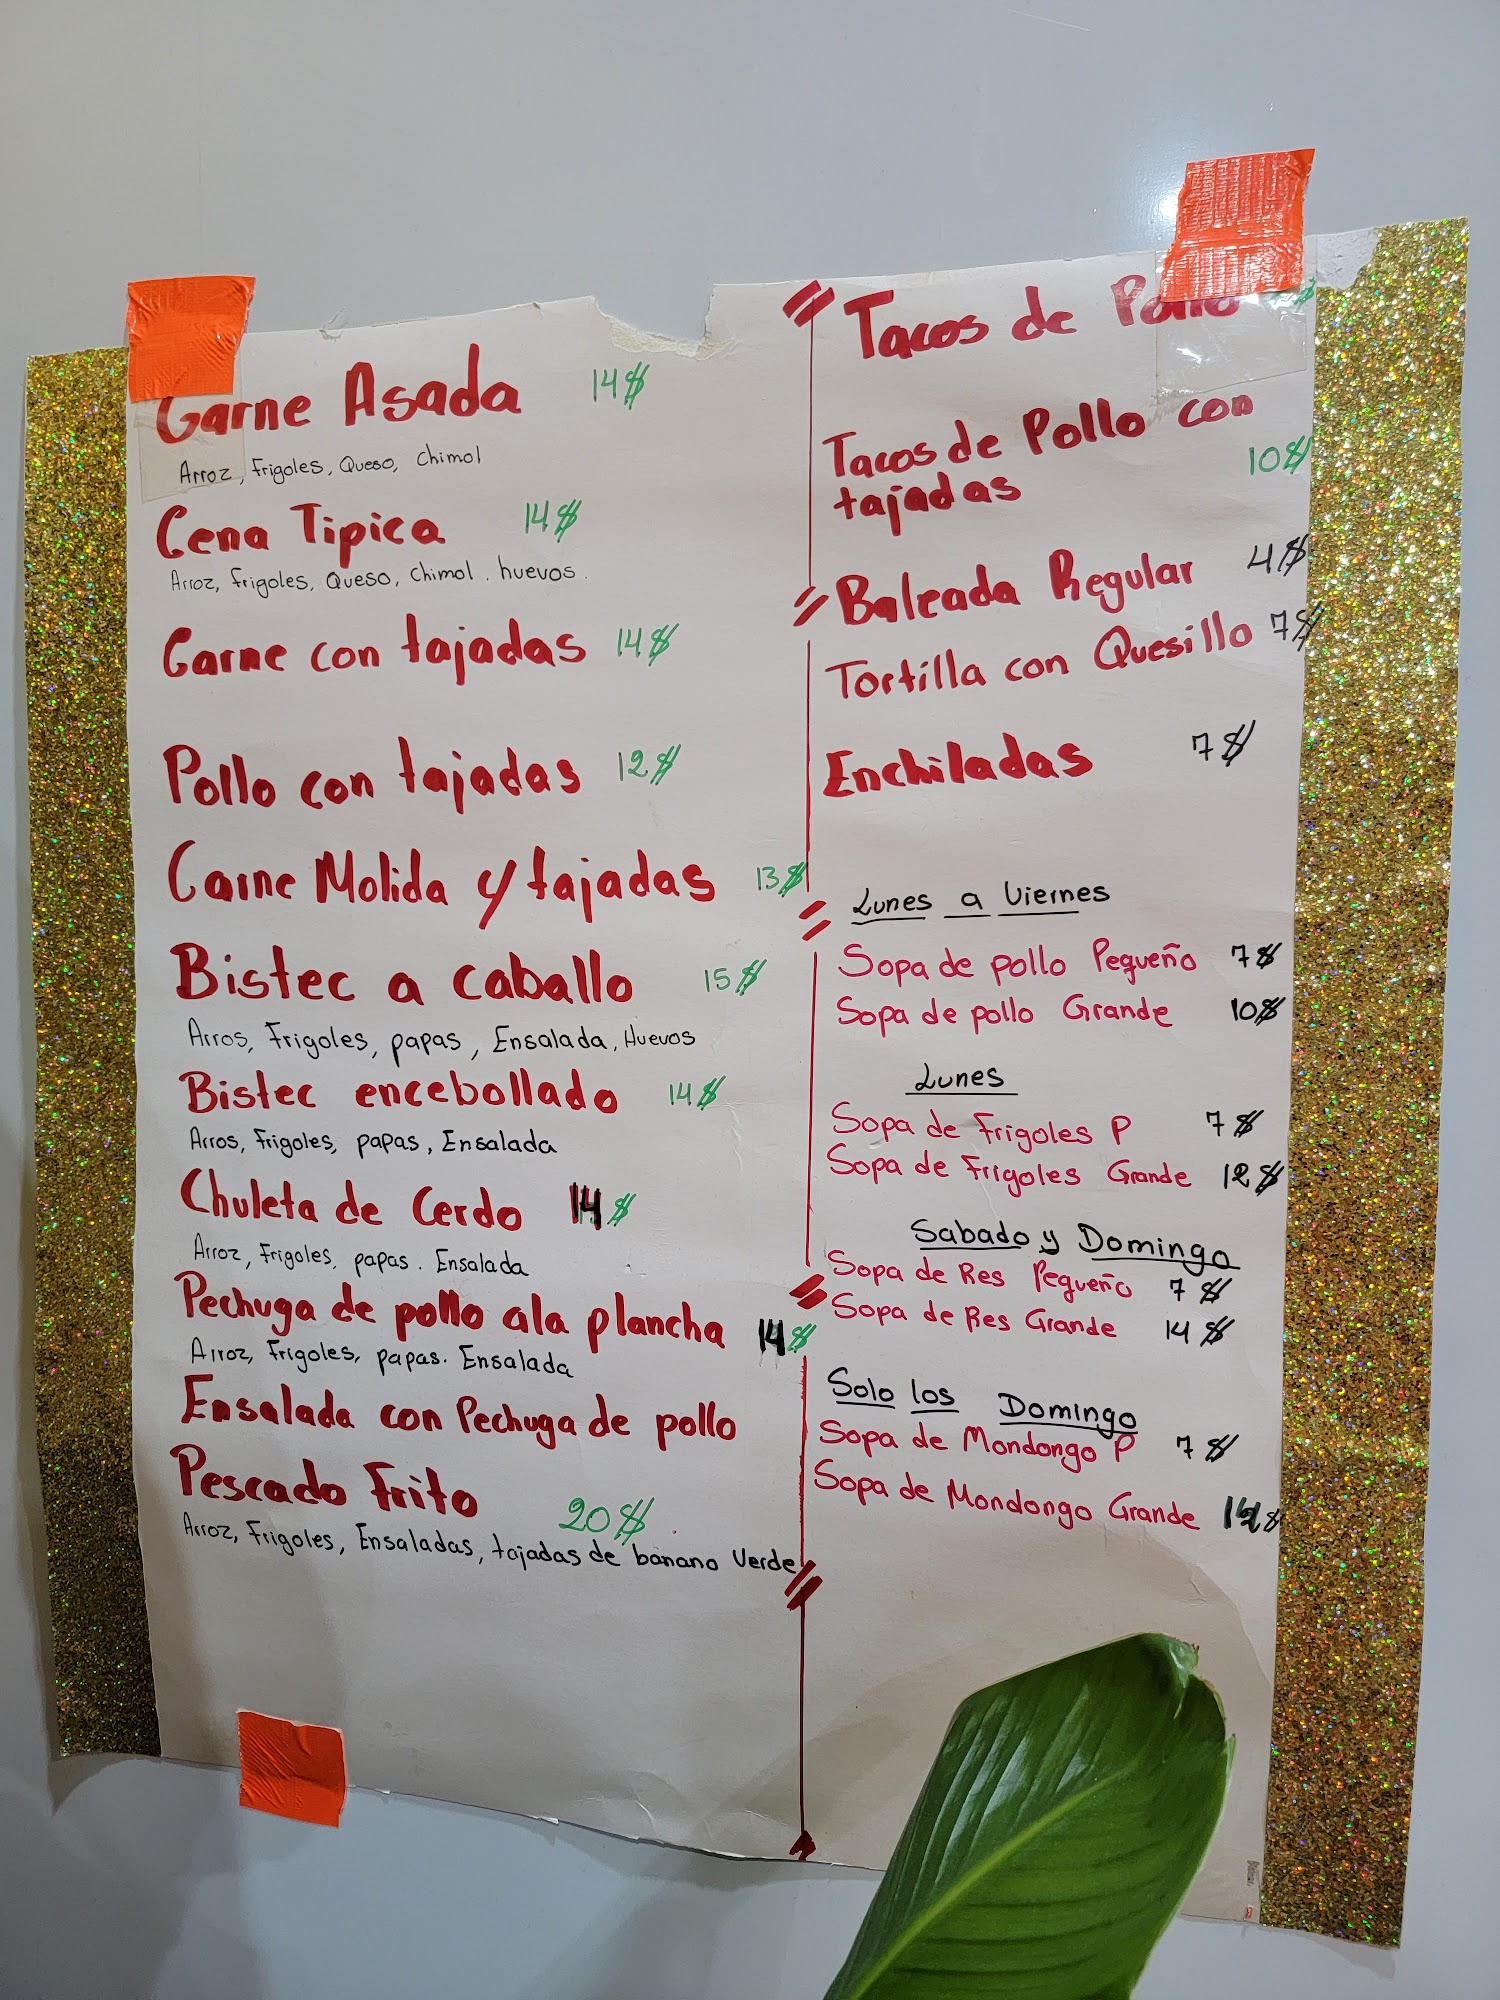 Carne Asada 14$
Arroz, Frigoles, Queso, Chimol
Cena Tipica 14$
Arroz, Frigoles, Queso, Chimol. huevos.
Carne con tajadas 14$
Pollo con tajadas 12$
Carne Molida y tajadas 13$
Bistec a caballo 15$
Arros, Frigoles, papas, Ensalada, Huevos
Bistec encebollado 14$
Arros, Frigoles, papas, Ensalada
Chuleta de Cerdo 14$
Arroz, Frigoles, papas. Ensalada
Pechuga de pollo ala plancha 14$
Arroz, Frigoles, papas. Ensalada
Ensalada con Pechuga de pollo
Pescado Frito 20$
Arroz, Frigoles, Ensaladas, tajadas de banano Verde
Tacos de Pollo
Tacos de Pollo con
tajadas 10$
Baleada Regular 4$
Tortilla con Quesillo 7$
Enchiladas 7$
Lunes a Viernes
Sopa de pollo Pequeño 7$
Sopa de pollo Grande 10$
Lunes
Sopa de Frigoles P 7$
Sopa de Frigoles Grande 12$
Sabado y Domingo
Sopa de Res Pequeño 7$
Sopa de Res Grande 14$
Solo los Domingo
Sopa de Mondongo P 7$
Sopa de Mondongo Grande